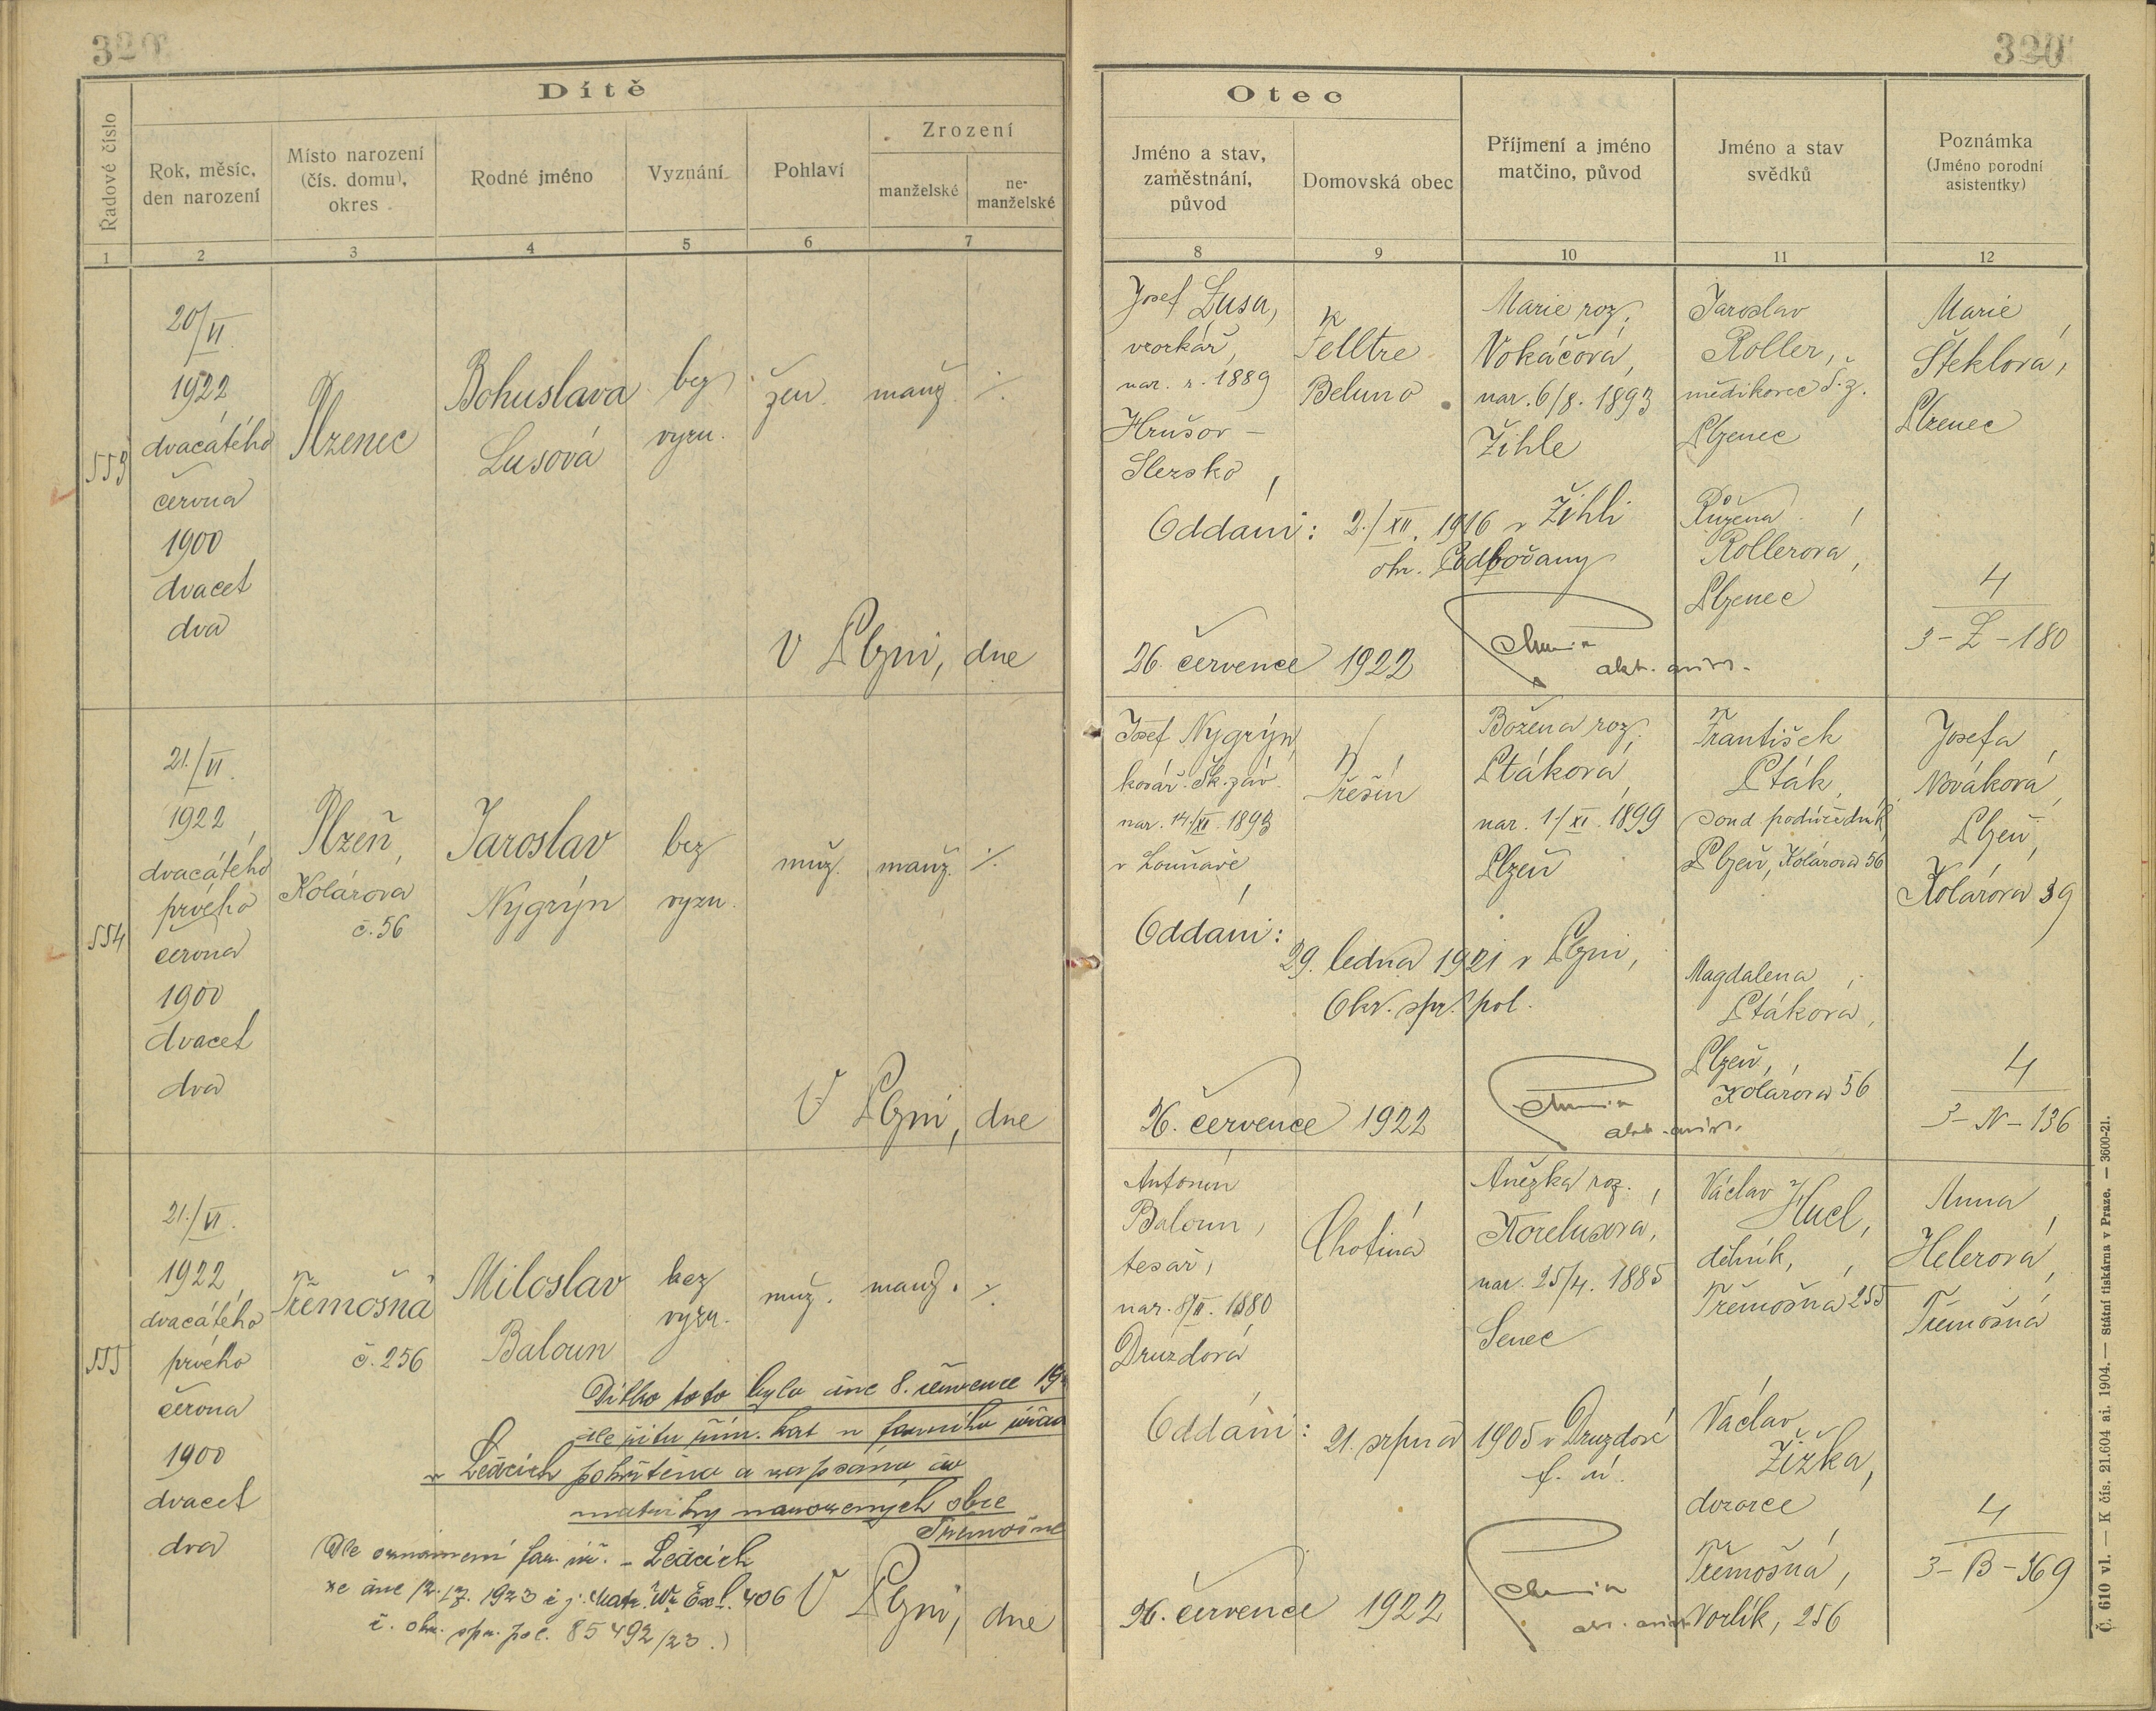 320
Dítě
Řadové číslo
Rok, měsíc,
den narození
Místo narození
(čís. domu),
okres
Rodné jméno
Vyznání
Pohlaví
Zrození
manželské
ne-
manželské
1 2 3 4 5 6 7
553
20/VI.
1922
dvacátého
června
1900
dvacet
dva
Plzenec
Bohuslava
Lusová
bez
vyzn.
žen.
manž.
V Plzni, dne
554
21./VI.
1922
dvacátého
prvého
června
1900
dvacet
dva
Plzeň,
Kolárova
č. 56
Jaroslav
Nygrýn
bez
vyzn.
muž.
manž.
V Plzni, dne
555
21./VI.
1922
dvacátého
prvého
června
1900
dvacet
dva
Třemošná
č. 256
Miloslav
Baloun
bez
vyzn.
muž.
manž.
Dítko toto bylo dne 8. července
dle ritu řím. kat v farního
v Ledcích pokřtěno a zapsáno do
matriky narozených obce
Třemošné
Dle oznámení far. úř. - Ledcích
ze dne 12./7. 1923 406
č. okr. spr. pol. 85492/23.)
V Plzni, dne
320
Otec
Jméno a stav,
zaměstnání,
původ
Domovská obec
Příjmení a jméno
matčino, původ
Jméno a stav
svědků
Poznámka
(Jméno porodní
asistentky)
8 9 10 11 12
Josef Lusa,
vzorkař,
nar. r. 1889
Hrušov -
Slezsko
Felltre
Beluno
Marie roz.
Vokáčová,
nar. 6/8. 1893
Žihle
Jaroslav
Roller,
mědikovec Š. z.
Plzenec
Růžena
Rollerová,
Plzenec
Marie
Šteklová,
Plzenec
Oddáni: 2./XII. 1916 v Žihli
okr. Podbořany
4
3-L-180
26. července 1922
Josef Nygrýn,
kovář Šk. záv.
nar. 14/XI. 1893
Řešín
Božena roz.
Ptáková,
nar. 1/XI. 1899
Plzeň
František
Pták,
soud. podúředník
Plzeň, Kolárova 56
Magdalena
Ptáková,
Plzeň,
Kolárova 56
Josefa
Nováková,
Plzeň,
Kolárova 39
Oddáni:
29. ledna 1921 v Plzni,
Okr. spr. pol.
4
3-N-136
26. července 1922
Antonín
Baloun,
tesař,
nar. 1880
Druzdová
Chotiná
Anežka roz.
Korelusová,
nar. 25/4. 1885
Senec
Václav Hucl,
dělník,
Třemošná 255
Václav
Žižka,
dozorce
Třemošná,
Vorlík, 256
Anna
Helerová,
Třemošná
Oddáni: 21. srpna 1905 v Druzdové
f. ú.
4
3-B-369
26. července 1922
Č. 610 vl. — K čís. 21.604 ai. 1904. — Státní tiskárna v Praze. — 3600-21.